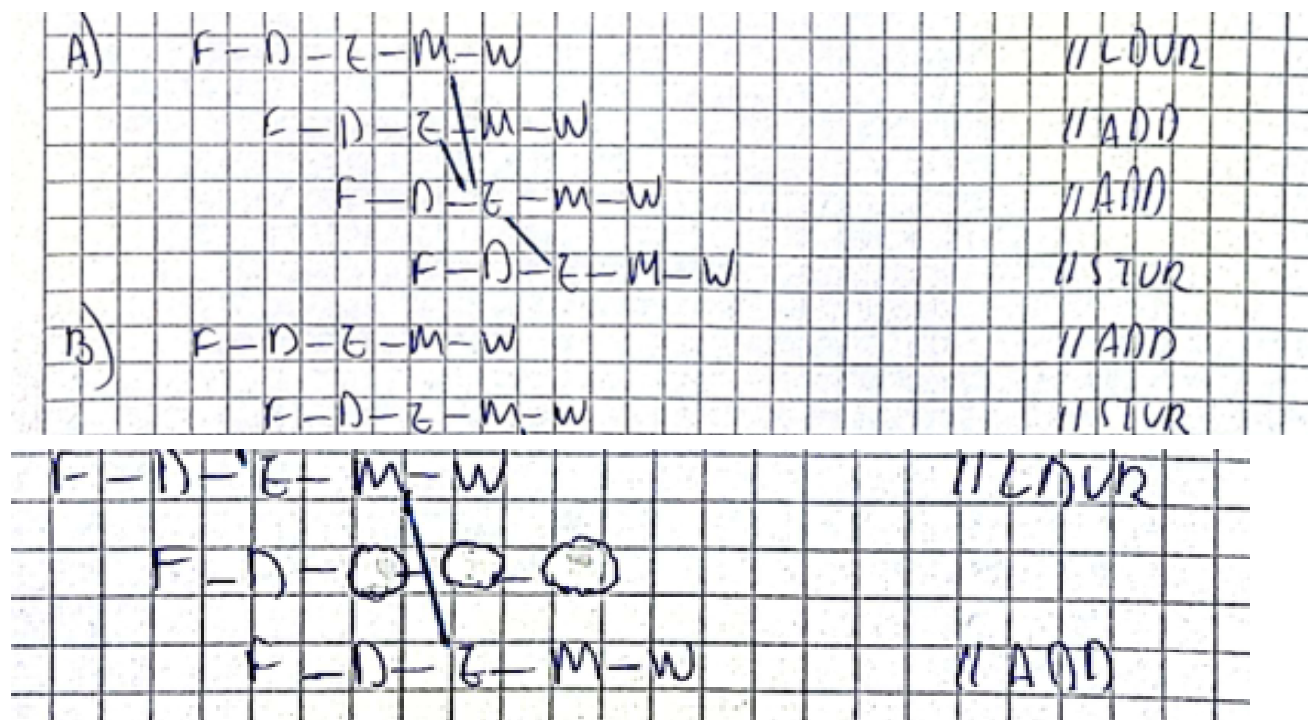 A) F-D-E-M-W //LDUR
F-D-E-M-W //ADD
F-D-E-M-W //ADD
F-D-E-M-W //STUR
B) F-D-E-M-W //ADD
F-D-E-M-W //STUR
F-D-E-M-W //LDUR
F-D-O-O-O
F-D-E-M-W //ADD